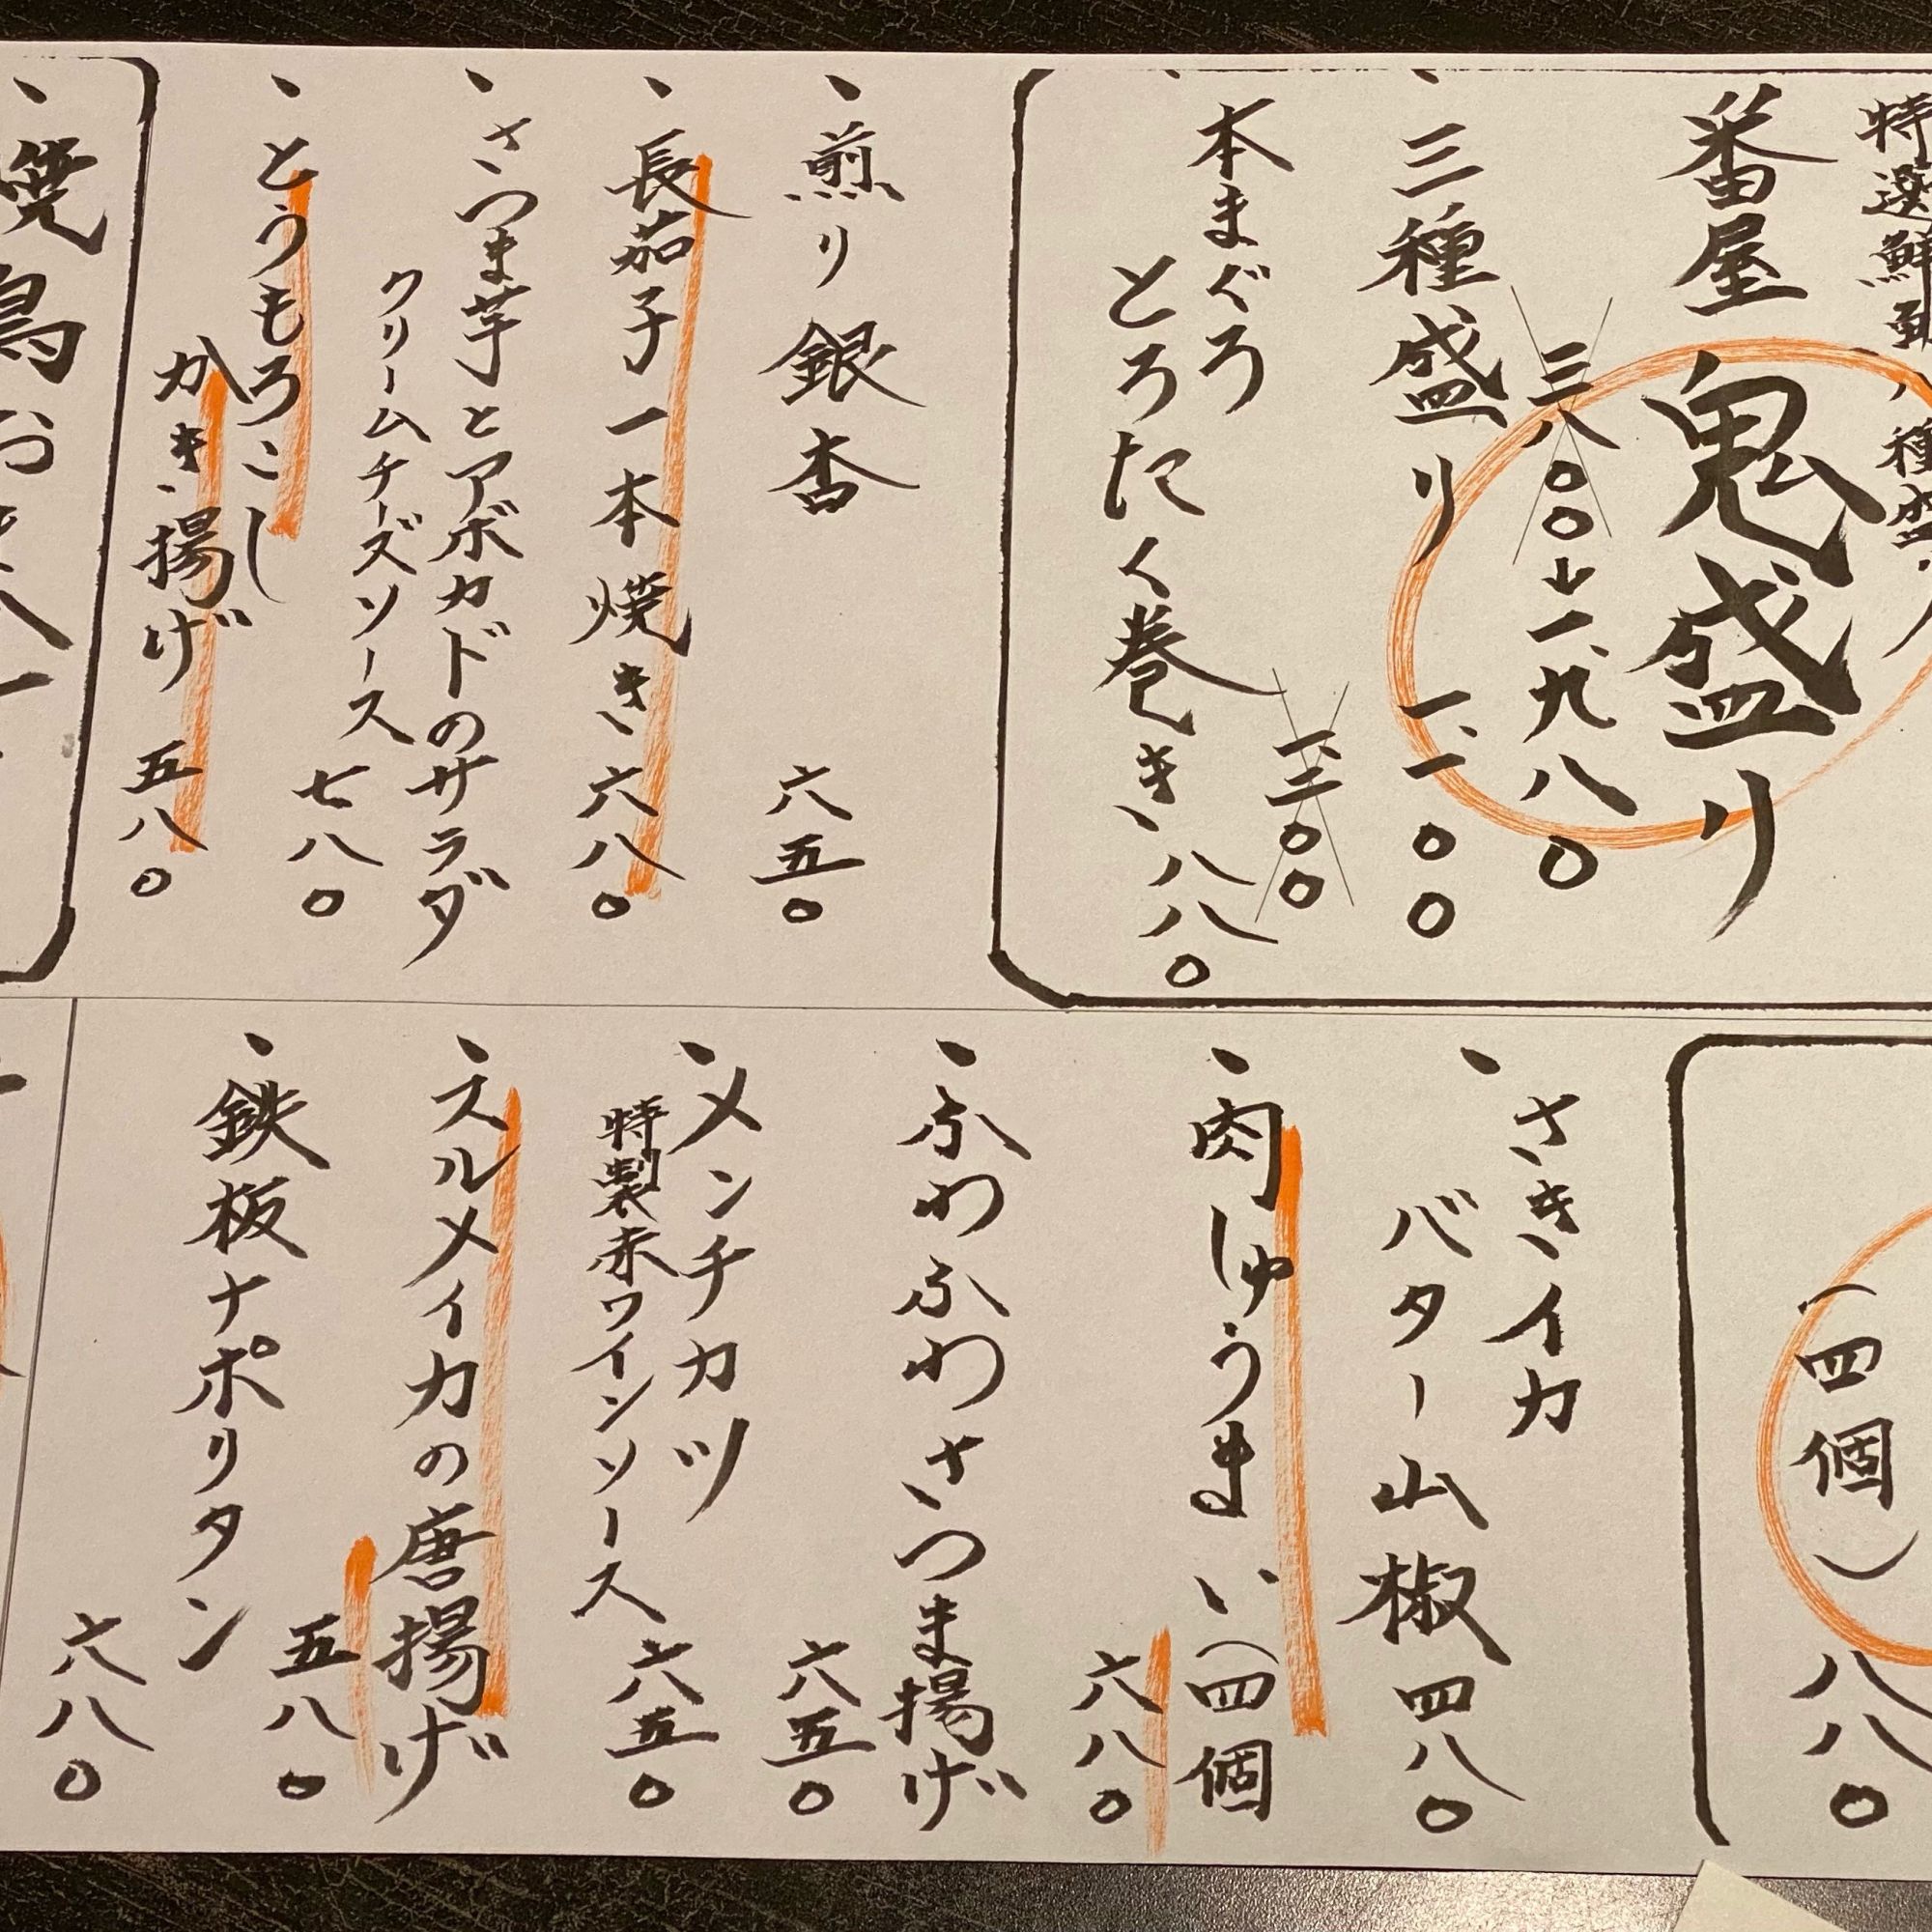 特選鮮魚八種盛り
番屋 鬼盛り
三八〇〇→一、九八〇
三種盛り 一、一〇〇
本まぐろ
とろたく巻き 八八〇
一、三〇〇
煎り銀杏 六五〇
長茄子一本焼き 六八〇
さつま芋とアボカドのサラダ
クリームチーズソース 七八〇
とうもろこし
かき揚げ 五八〇
焼鳥お
(四個) 八八〇
さきイカ
バター山椒 四八〇
肉しゅうまい(四個
六八〇
ふわふわさつま揚げ
六五〇
メンチカツ
特製赤ワインソース 六五〇
スルメイカの唐揚げ
五八〇
鉄板ナポリタン
六八〇